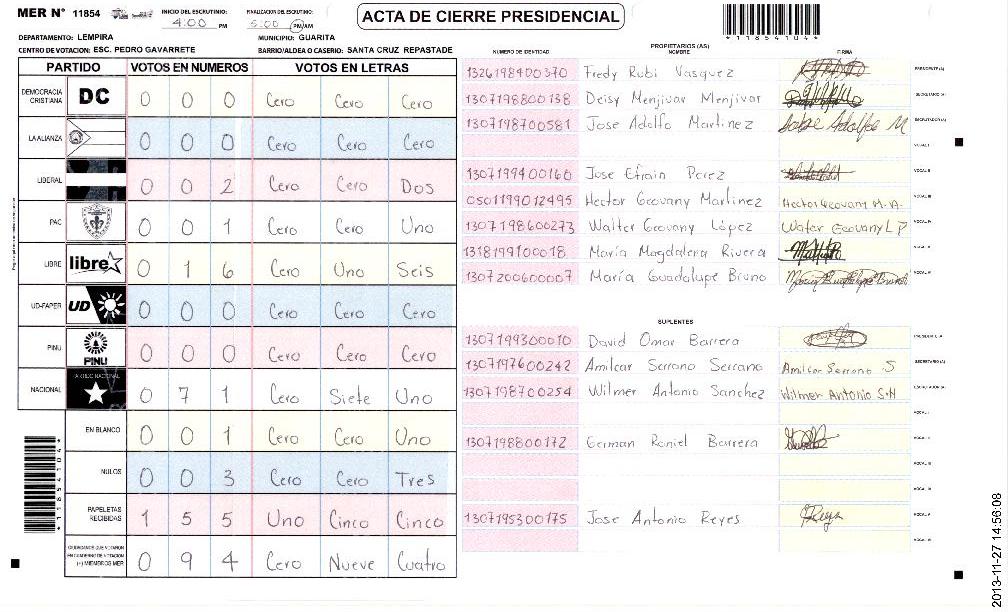 MER Nº 11854
INICIO DEL ESCRUTINIO: 4:00 PM
FINALIZACION DEL ESCRUTINIO: 5:00 PM/AM
ACTA DE CIERRE PRESIDENCIAL
*11854104*
DEPARTAMENTO: LEMPIRA
MUNICIPIO: GUARITA
CENTRO DE VOTACION: ESC. PEDRO GAVARRETE
BARRIO/ALDEA O CASERIO: SANTA CRUZ REPASTADE
PARTIDO VOTOS EN NUMEROS VOTOS EN LETRAS
DEMOCRACIA CRISTIANA DC 0 0 0 Cero Cero Cero
LA ALIANZA 0 0 0 Cero Cero Cero
LIBERAL 0 0 2 Cero Cero Dos
PAC 0 0 1 Cero Cero Uno
LIBRE libre 0 1 6 Cero Uno Seis
UD-FAPER UD 0 0 0 Cero Cero Cero
PINU PINU 0 0 0 Cero Cero Cero
NACIONAL PARTIDO NACIONAL 0 7 1 Cero Siete Uno
EN BLANCO 0 0 1 Cero Cero Uno
NULOS 0 0 3 Cero Cero Tres
PAPELETAS RECIBIDAS 1 5 5 Uno Cinco Cinco
CIUDADANOS QUE VOTARON EN CUADERNO DE VOTACION (+) MIEMBROS MER 0 9 4 Cero Nueve Cuatro
*11854104*
PROPIETARIOS (AS)
NUMERO DE IDENTIDAD NOMBRE FIRMA
1326198400370 Fredy Rubi Vasquez PRESIDENTE (A)
1307198800138 Deisy Menjivar Menjivar SECRETARIO (A)
1307198700581 Jose Adolfo Martinez Jose Adolfo M ESCRUTADOR (A)
VOCAL I
1307199400160 Jose Efrain Perez VOCAL II
0501199012495 Hector Geovany Martinez Hector Geovany M.A. VOCAL III
1307198600273 Walter Geovany López Walter Geovany L P VOCAL IV
1318199100018 María Magdalena Rivera VOCAL V
1307200600007 María Guadalupe Bruno VOCAL VI
SUPLENTES
1307199300010 David Omar Barrera PRESIDENTE (A)
1307197600242 Amilcar Serrano Serrano Amilcar Serrano S SECRETARIO (A)
1307198700254 Wilmer Antonio Sanchez Wilmer Antonio S.H ESCRUTADOR (A)
VOCAL I
1307198800172 German Roniel Barrera VOCAL II
VOCAL III
VOCAL IV
1307195300175 Jose Antonio Reyes Reyes VOCAL V
VOCAL VI
2013-11-27 14:56:08